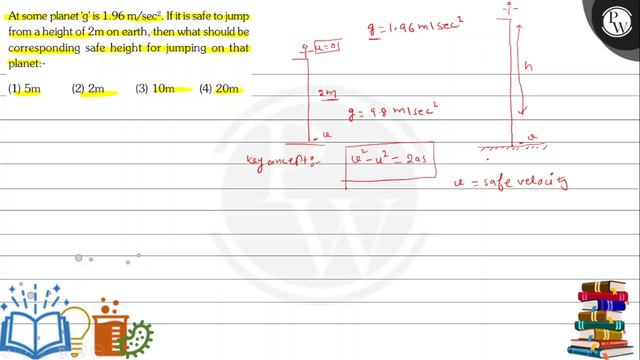 At some planet 'g' is 1.96 m/sec². If it is safe to jump
from a height of 2m on earth, then what should be
corresponding safe height for jumping on that
planet:-
(1) 5m (2) 2m (3) 10m (4) 20m
g = 1.96 m/sec²
u=0
2m
g = 9.8 m/sec²
v
h
v
key concept :-
v² - u² = 2as
v = safe velocity
PW